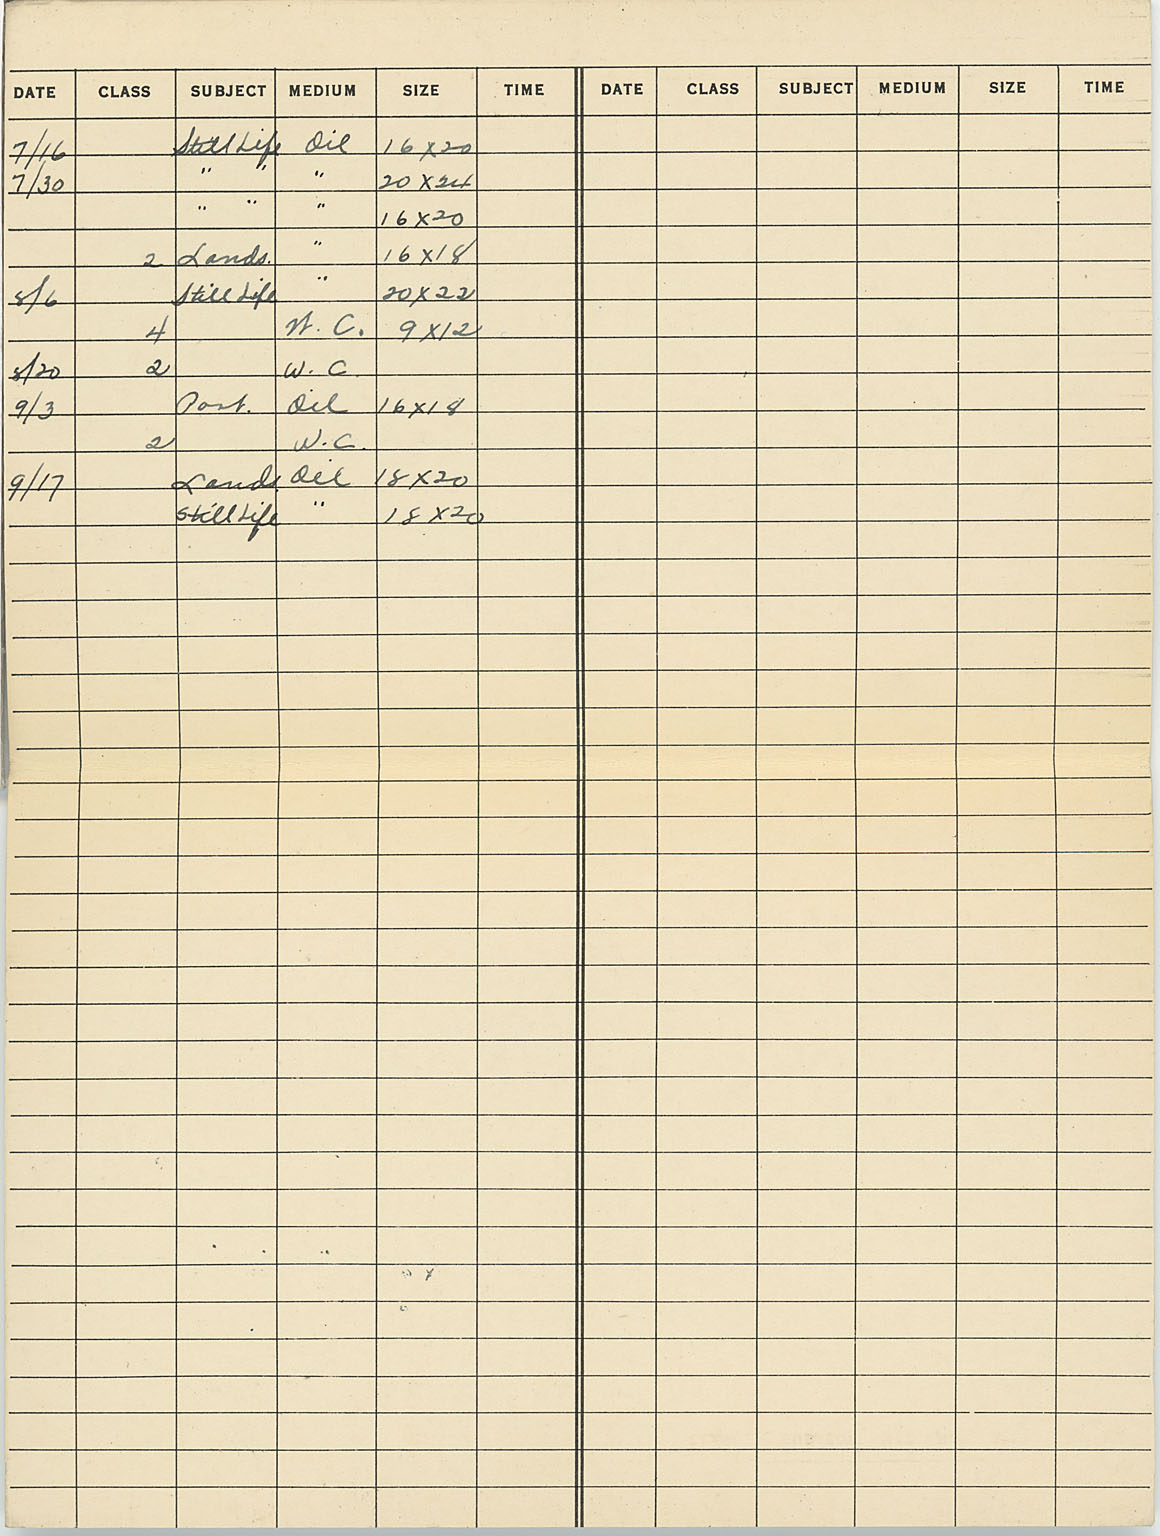 DATE CLASS SUBJECT MEDIUM SIZE TIME DATE CLASS SUBJECT MEDIUM SIZE TIME
7/16 Still Life Oil 16 X 20
7/30 " " " 20 X 24
" " " 16 X 20
2 Lands. " 16 X 18
8/6 Still Life " 20 X 22
4 W. C. 9 X 12
8/20 2 W. C.
9/3 Port. Oil 16 X 18
2 W. C.
9/17 Lands. Oil 18 X 20
Still Life " 18 X 20